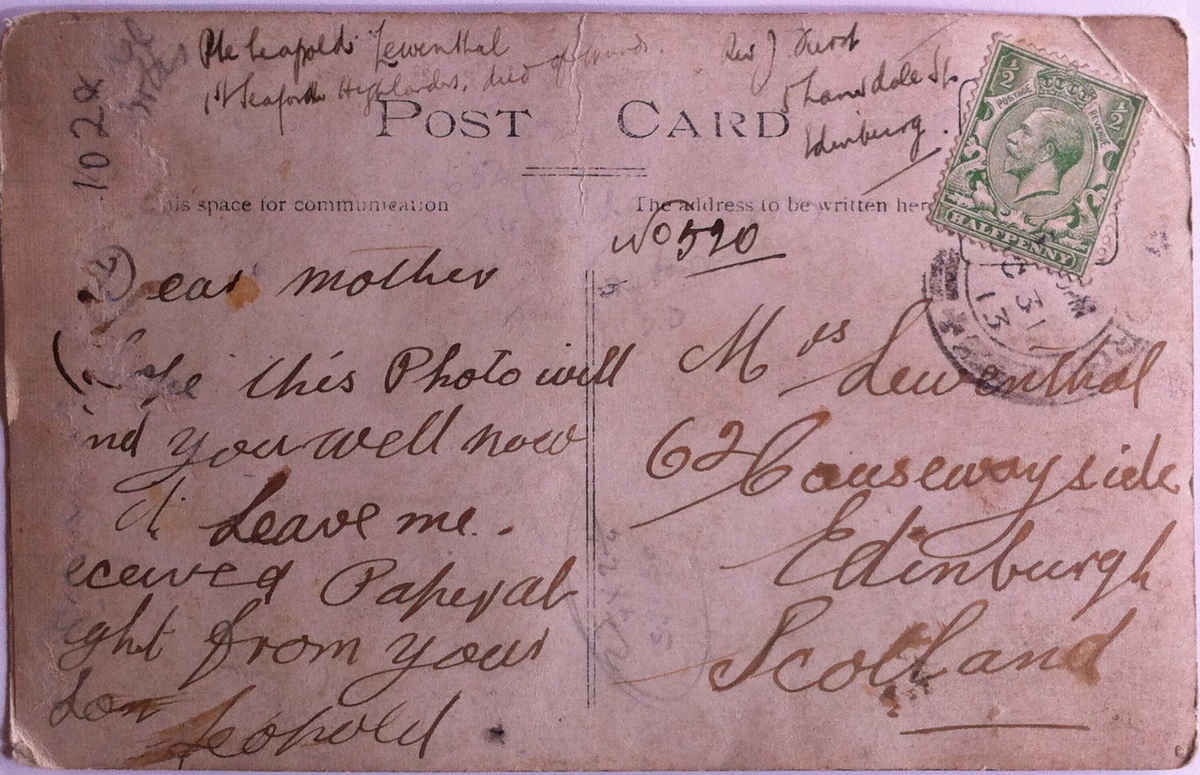 Pte Leopold Lewenthal
1st Seaforth Highlanders, died of wounds.
Rev J Furst
5 Lansdale St
Edinburg
1028
POST CARD
his space for communication
The address to be written her
No 520
Dear mother
hope this Photo will
ind you well now
it Leave me.
eceived Paper al
ight from your
Son
Leopold
Mrs Lewenthal
62 Causewayside
Edinburgh
Scotland
½ ½
POSTAGE REVENUE
HALFPENNY
31
13